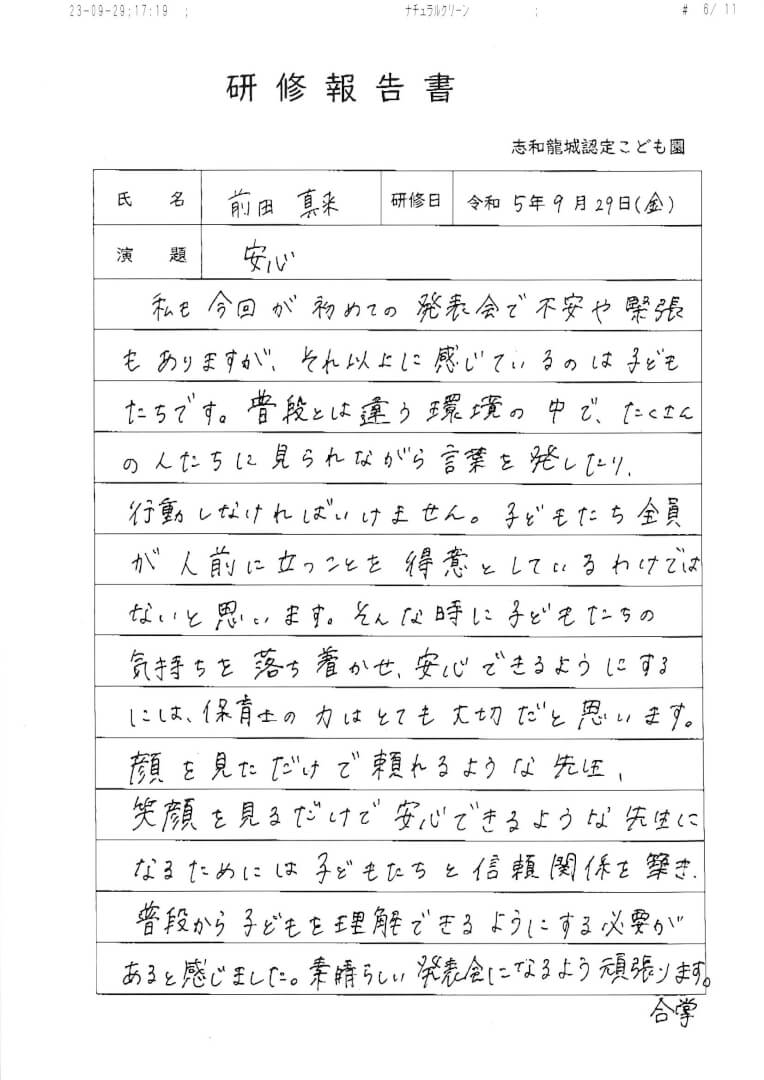 23-09-29;17:19 ; ナチュラルクリーン ; # 6/ 11
研修報告書
志和龍城認定こども園
氏名 前田 真来 研修日 令和 5年 9月 29日(金)
演題 安心
私も今回が初めての発表会で不安や緊張
もありますが、それ以上に感じているのは子ども
たちです。普段とは違う環境の中で、たくさん
の人たちに見られながら言葉を発したり、
行動しなければいけません。子どもたち全員
が人前に立つことを得意としているわけでは
ないと思います。そんな時に子どもたちの
気持ちを落ち着かせ、安心できるようにする
には、保育士の力はとても大切だと思います。
顔を見ただけで頼れるような先生、
笑顔を見るだけで安心できるような先生に
なるためには子どもたちと信頼関係を築き、
普段から子どもを理解できるようにする必要が
あると感じました。素晴らしい発表会になるよう頑張ります。
合掌